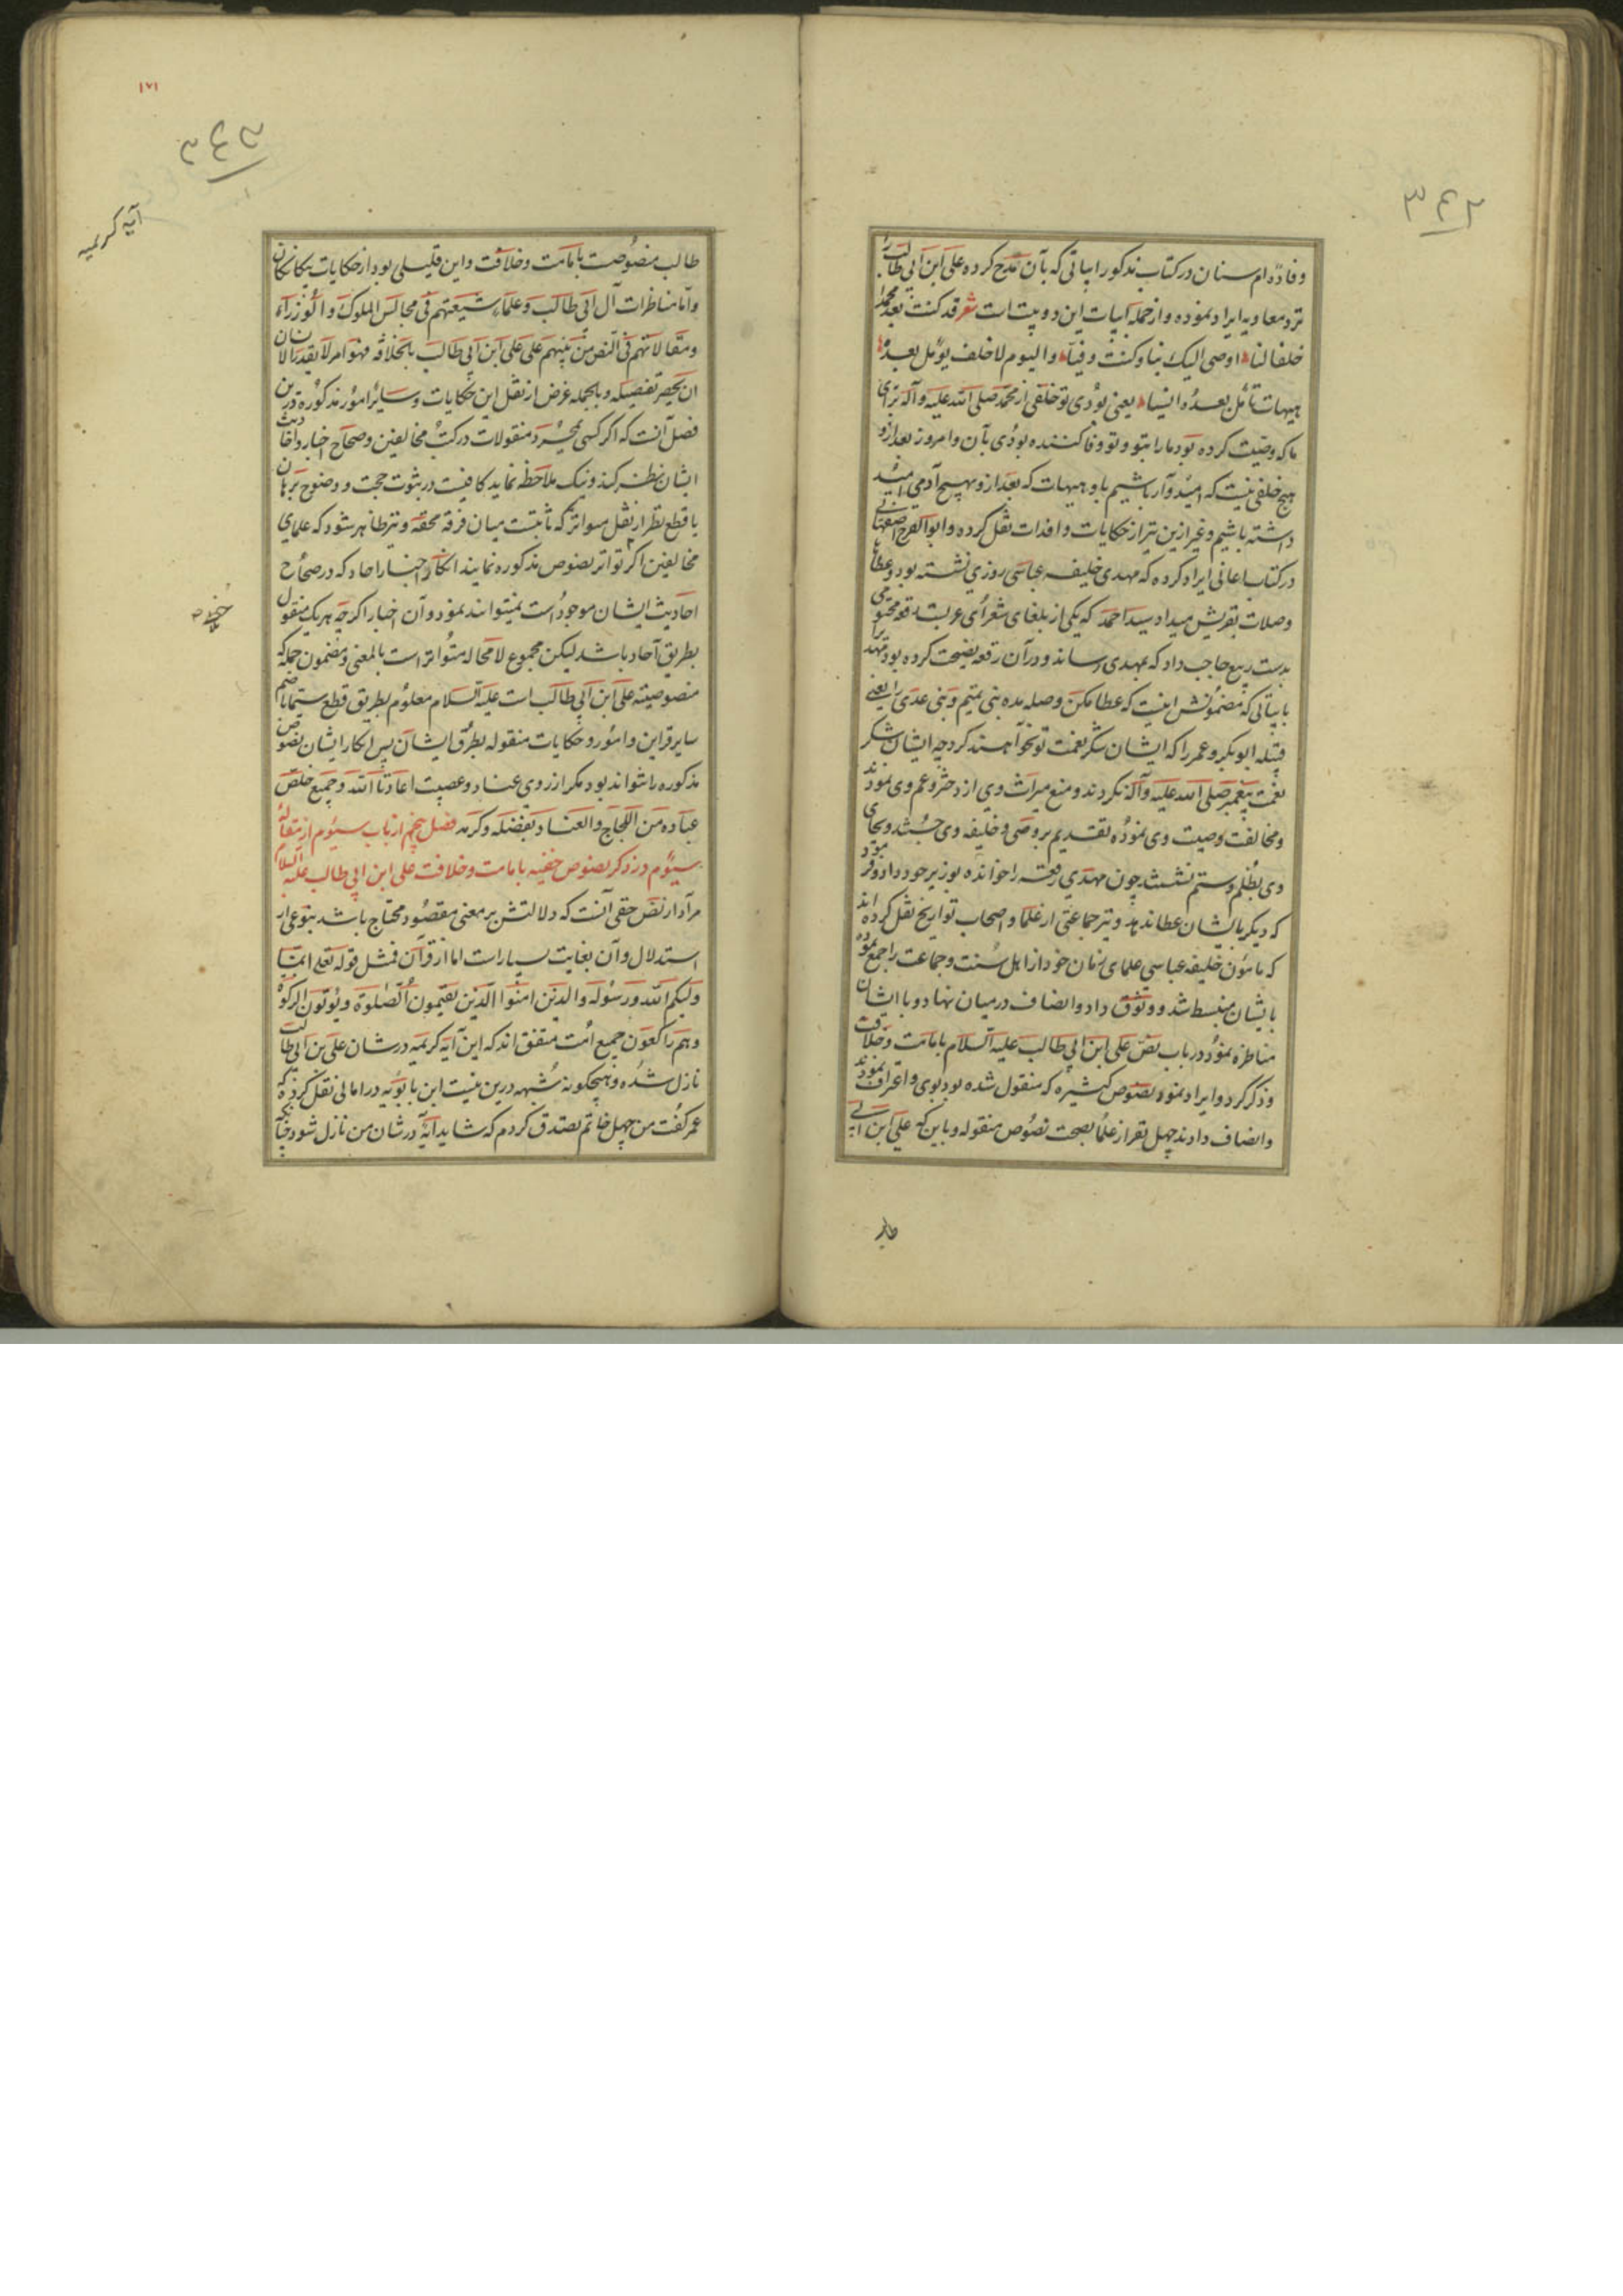 ٣٤٢
وفادهٔ ام سنان در کتاب مذکور ابیاتی که بآن مدح کرده علی ابن ابی طالب را
نزد معاویه ایراد نموده و از جمله ابیات این دو بیتست شعر قد کنت بعد محمد
خلفا لنا اوصی الیک بنا و کنت وفیا والیوم لا خلف یؤمل بعده
هیهات نامل بعده انسیا یعنی بودی تو خلفی از محمد صلی الله علیه و آله برای
ما که وصیت کرده بود ما را بتو و تو وفا کننده بودی بآن و امروز بعد از تو
هیچ خلفی نیست که امیدوار باشیم باو هیهات که بعد از و بهیچ آدمی امید
داشته باشیم و غیر ازین نیز از حکایات وافدات نقل کرده و ابو الفرج اصفهانی
در کتاب اغانی ایراد کرده که مهدی خلیفه عباسی روزی نشسته بود و عطا
وصلات بقریش میداد سید احمد که یکی از بلغای شعرای عربست رقعه مختومی
بدست ربیع حاجب داد که بمهدی رساند و در آن رقعه نصیحت کرده بود مهدی را
بابیاتی که مضمونش اینست که عطا مکن وصله مده بنی تمیم و بنی عدی را یعنی
قبیله ابو بکر و عمر را که ایشان شکر نعمت تو نخواهند کرد چه ایشان شکر
نعمت پیغمبر صلی الله علیه و آله نکردند و منع میراث وی از دختر و عم وی نمودند
و مخالفت وصیت وی نموده تقدیم بر وصی و خلیفه وی جستند و بجای
وی بظلم و ستم نشستند چون مهدی رقعه را خوانده بوزیر خود داد و فرمود
که دیگر بایشان عطا ندهد و نیز جماعتی از علما و اصحاب تواریخ نقل کرده اند
که مامون خلیفه عباسی علمای زمان خود از اهل سنت و جماعت را جمع نموده
بایشان منبسط شد و وثوق داد و انصاف در میان نهاد و با ایشان
مناظره نمود در باب نص علی ابن ابی طالب علیه السلام بامامت و خلافت
و ذکر کرد و ایراد نمود نصوص کثیره که منقول شده بود بوی و اعتراف نمودند
و انصاف دادند چهل نفر از علما بصحت نصوص منقوله و باین که علی ابن ابی
طالب
١٧١
٣٤٣
آیه کریمیه
طالب منصوصست بامامت و خلافت و این قلیلی بود از حکایات بیکانکان
و اما مناظرات آل ابی طالب و علماء شیعتهم فی مجالس الملوک و الوزراء
و مقالاتهم فی النص من نبیهم علی علی ابن ابی طالب بالخلافه فهو امر لا یقدر الانسان
ان یحصر تفصیله و بالجمله غرض از نقل این حکایات و سایر امور مذکوره درین
فصل آنست که اگر کسی بمجرد منقولات در کتب مخالفین و صحاح اخبار و احادیث
ایشان نظر کند و نیک ملاحظه نماید کافیست در ثبوت حجت و وضوح برهان
با قطع نظر از نقل متواتر که ثابتست میان فرقه محقه و نیز ظاهر شود که علمای
مخالفین اگر تواتر نصوص مذکوره نمایند انکار اخبار احاد که در صحاح
احادیث ایشان موجود است نمیتوانند نمود و آن اخبار اگرچه هر یک منقول
بطریق آحاد باشد لیکن مجموع لا محاله متواتر است بالمعنی و مضمون جمله که
منصوصیت علی ابن ابی طالب است علیه السلام معلوم بطریق قطع سیما با ضم
سایر قراین و امور و حکایات منقوله بطرق ایشان پس انکار ایشان نصوص
مذکوره را نتواند بود مگر از روی عناد و عصبیت اعاذنا الله و جمیع خلص
عباده من اللجاج و العناد بفضله و کرمه فصل پنجم از باب سیوم از مقاله
سیوم در ذکر نصوص خفیه بامامت و خلافت علی ابن ابی طالب علیه السلام
مراد از نص خفی آنست که دلالتش بر معنی مقصود محتاج باشد بنوعی از
استدلال و آن بغایت بسیار است اما از قرآن فمثل قوله تعلی انما
ولیکم الله و رسوله و الذین امنوا الذین یقیمون الصلوة و یؤتون الزکوة
و هم راکعون جمیع امت متفق اند که این آیه کریمه در شان علی بن ابی طالب
نازل شده و هیچگونه شبهه درین نیست ابن بابویه در امالی نقل کرده که
عمر گفت من چهل خاتم تصدق کردم که شاید آیه در شان من نازل شود چنانکه